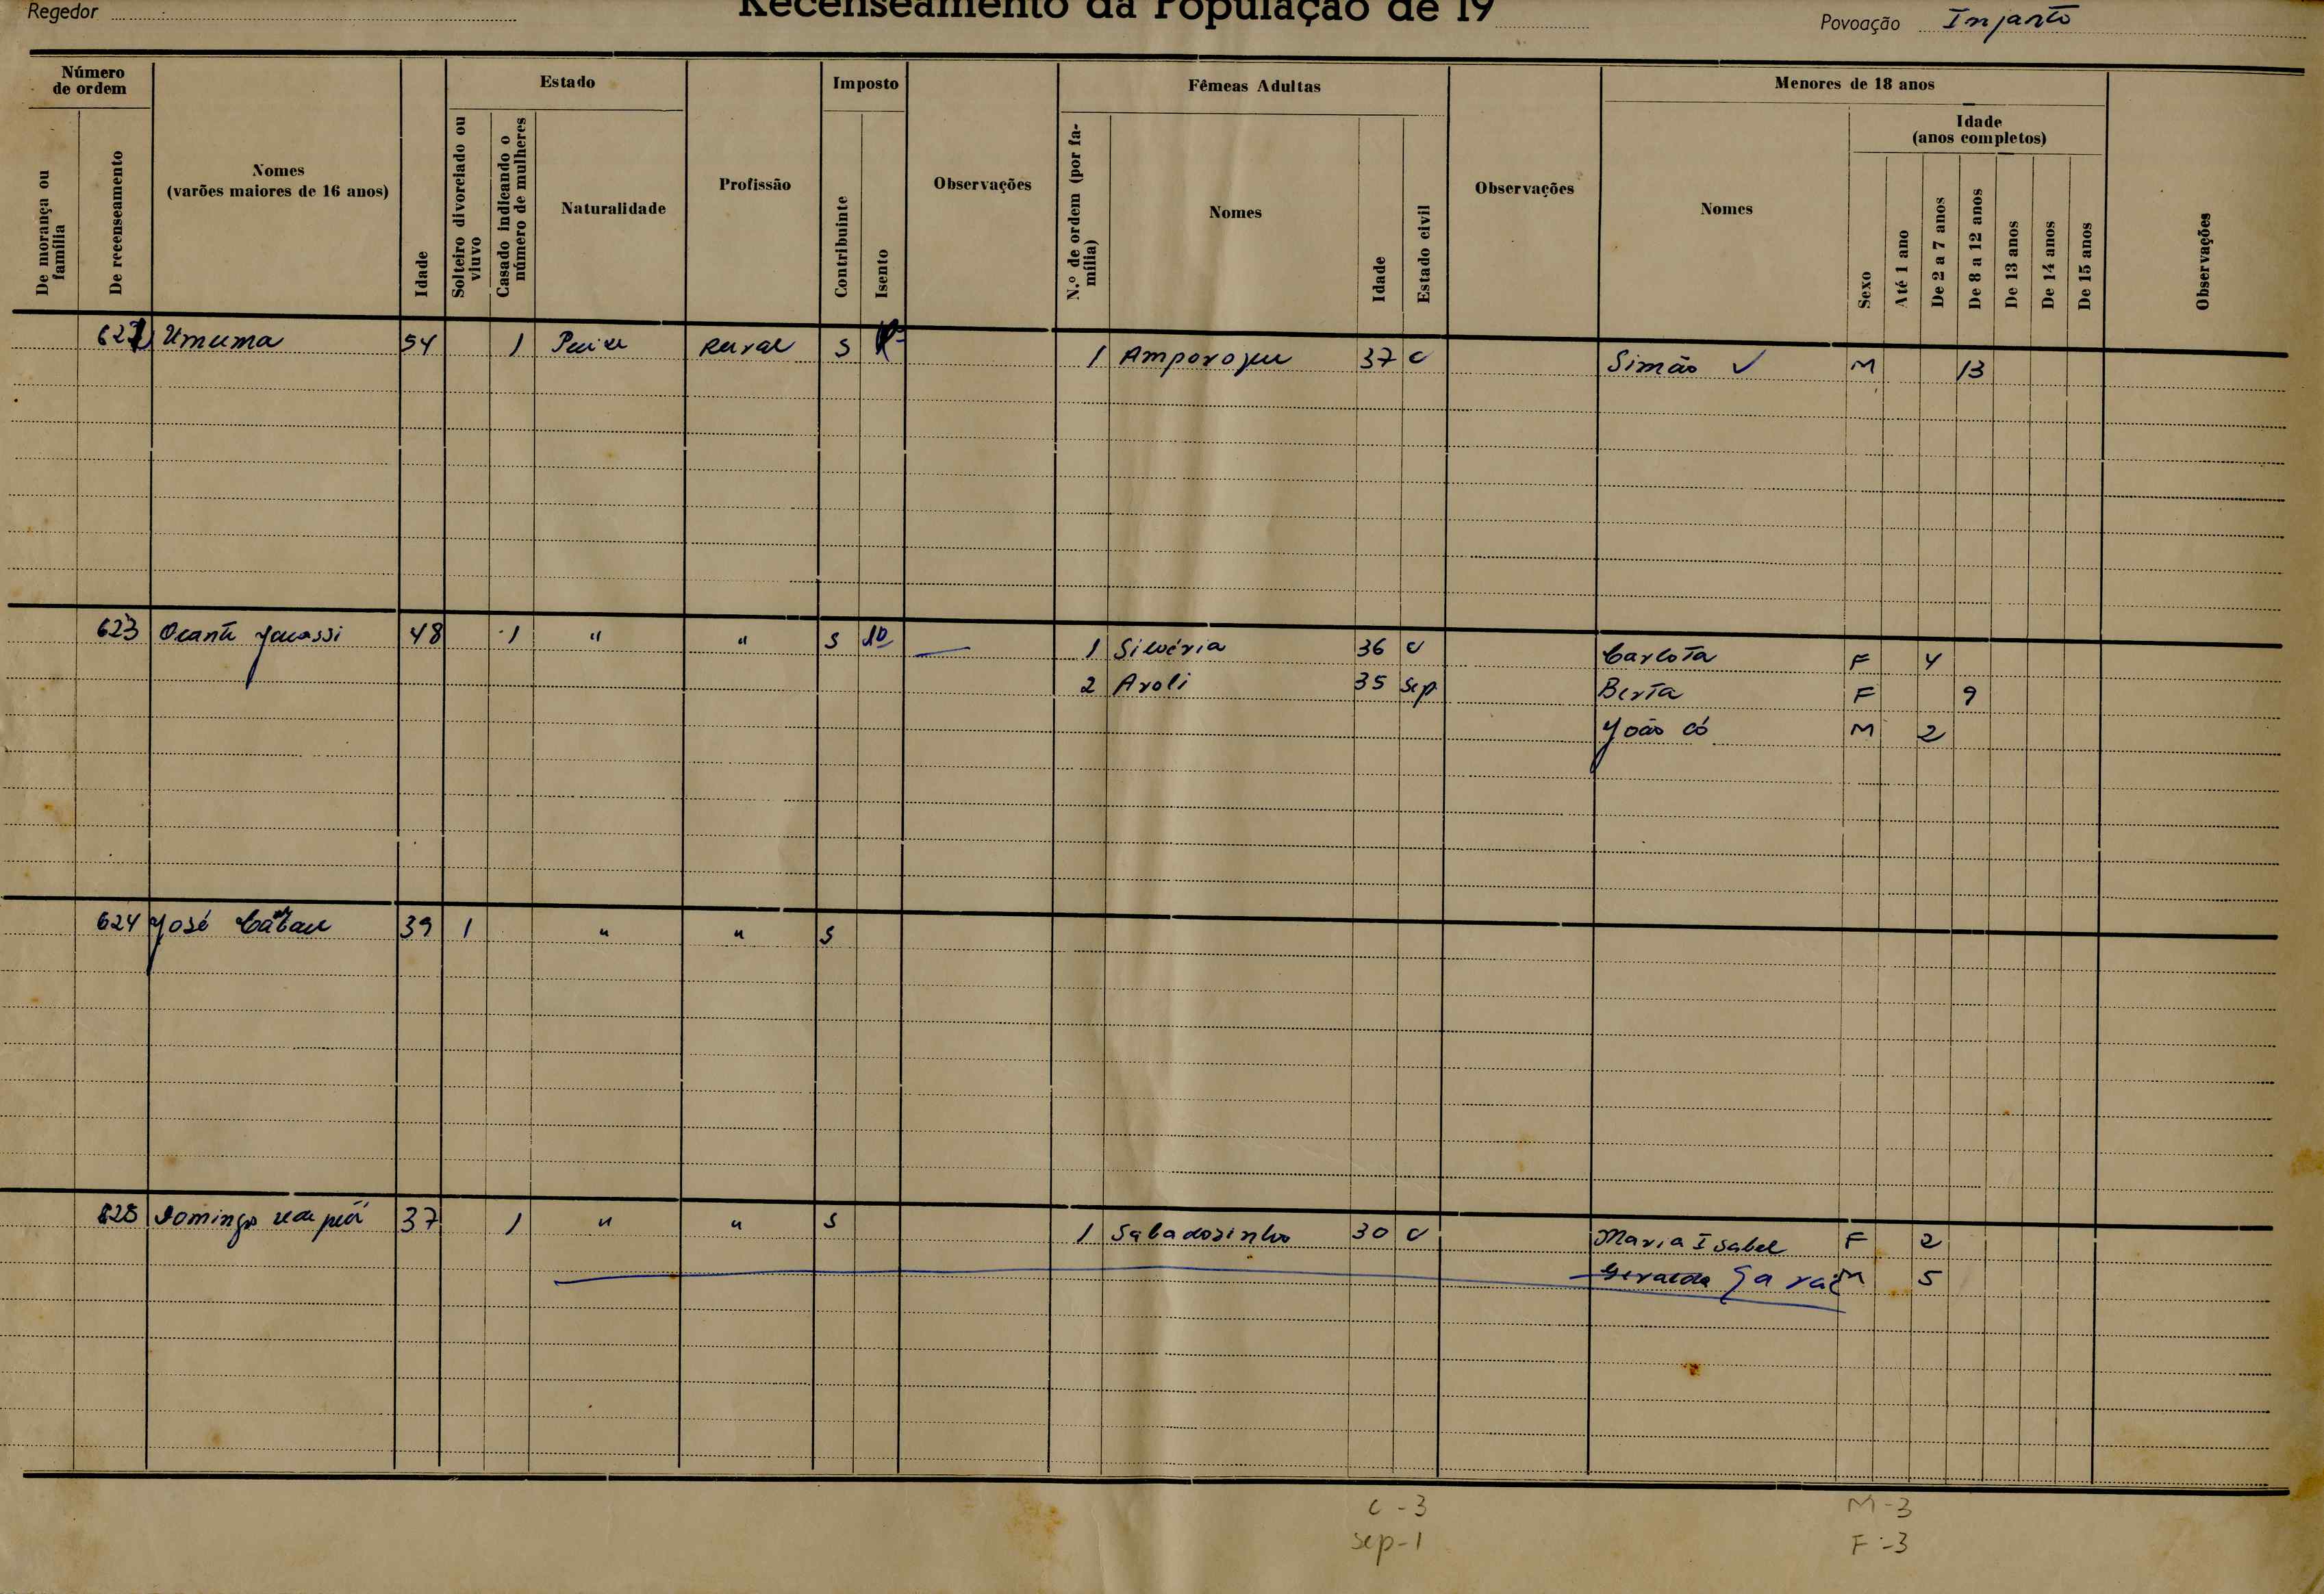 Regedor
Recenseamento da População de 19
Povoação Injanto
Número de ordem
De morança ou família
De recenseamento
Nomes
(varões maiores de 16 anos)
Idade
Estado
Solteiro divorciado ou viuvo
Casado indicando o número de mulheres
Naturalidade
Profissão
Imposto
Contribuinte
Isento
Observações
Fêmeas Adultas
N.º de ordem (por família)
Nomes
Idade
Estado civil
Observações
Menores de 18 anos
Nomes
Sexo
Idade
(anos completos)
Até 1 ano
De 2 a 7 anos
De 8 a 12 anos
De 13 anos
De 14 anos
De 15 anos
Observações
Umuma 54 1 Rural S 1 37 C Simão ✓ M 13
623 48 1 " " S 10 — 1 Silvéria 36 C Carlota F 4
2 Aroli 35 Sep Berta F 9
João Có M 2
624 José 39 1 " " S
625 Domingos 37 1 " " S 1 Sabadozinho 30 C Maria Isabel F 2
M 5
C - 3 M - 3
Sep - 1 F - 3